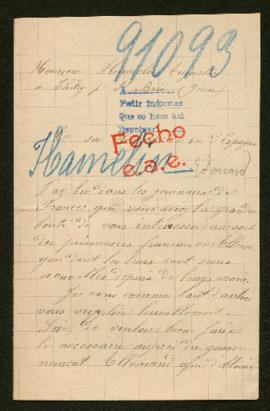 91093
Monsieur Hamelin
à Thilly p. (Yonne)
A
Pedir informes
Que se hace aqui
Devolver
Fecho
e.a.e.
Hamelin
sa roi d'Espagne
J'ai lu dans les journaux de
France, que vous avez la grande
bonté de vous intéresser au sort
des prisonniers français en
dont les leurs sont sans
nouvelles depuis de longs mois.
Je viens comme tant d'autres
vous supplier humblement
Sire, de vouloir bien faire
le nécessaire auprès du gouver-
nement Allemand afin d'obtenir